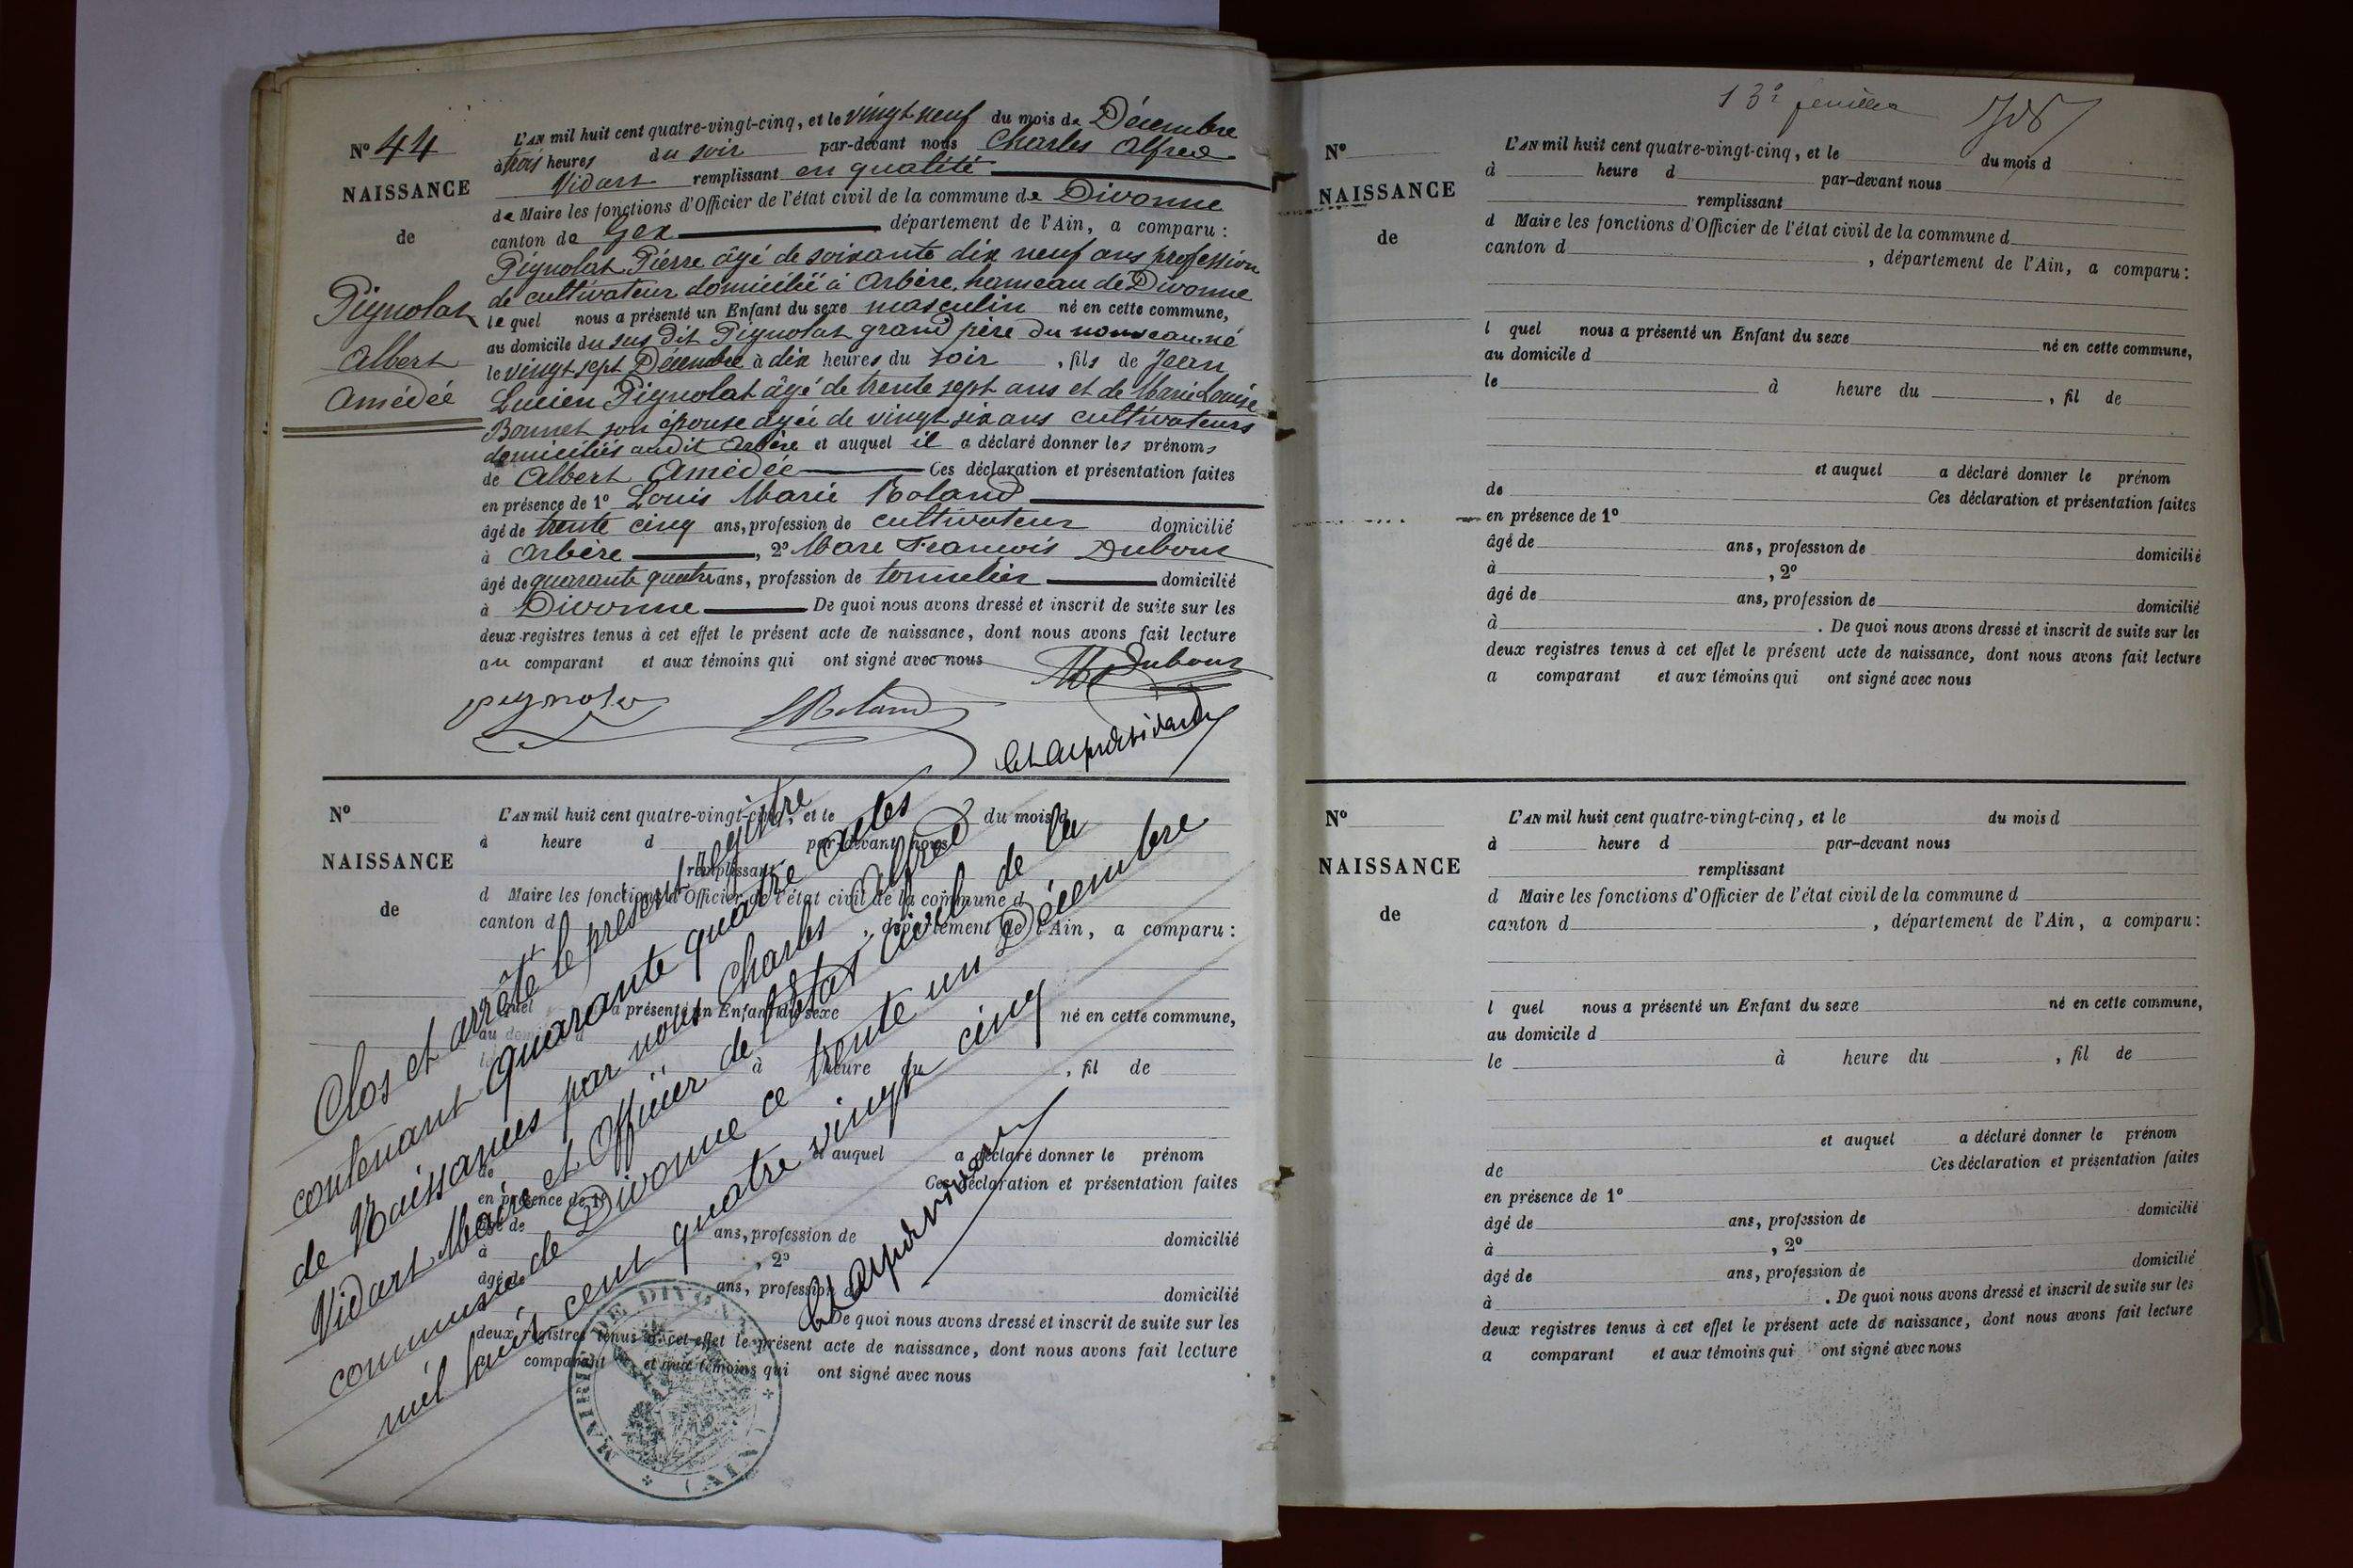 N° 44
NAISSANCE
de
Pignolat
Albert
Amédée
L'AN mil huit cent quatre-vingt-cinq, et le vingt neuf du mois de Décembre
à trois heures du soir par-devant nous Charles Alfred
Vidart remplissant en qualité
de Maire les fonctions d'Officier de l'état civil de la commune de Divonne
canton de Gex département de l'Ain, a comparu :
Pignolat Pierre âgé de soixante dix neuf ans profession
de cultivateur domicilié à Arbère, hameau de Divonne
lequel nous a présenté un Enfant du sexe masculin né en cette commune,
au domicile du sus dit Pignolat grand père du nouveau né
le vingt sept Décembre à dix heures du soir, fils de Jean
Lucien Pignolat âgé de trente sept ans et de Marie Louise
Bonnet son épouse âgée de vingt six ans cultivateurs
domiciliés au dit Arbère et auquel il a déclaré donner les prénoms
de Albert Amédée Ces déclaration et présentation faites
en présence de 1° Louis Marie Roland
âgé de trente cinq ans, profession de cultivateur domicilié
à Arbère, 2° Marc François Dubout
âgé de quarante quatre ans, profession de tonnelier domicilié
à Divonne De quoi nous avons dressé et inscrit de suite sur les
deux registres tenus à cet effet le présent acte de naissance, dont nous avons fait lecture
au comparant et aux témoins qui ont signé avec nous
Dubout
pignolat
LRoland
N°
NAISSANCE
de
L'AN mil huit cent quatre-vingt-cinq, et le du mois d
à heure d par-devant nous
remplissant
d Maire les fonctions d'Officier de l'état civil de la commune d
canton d , département de l'Ain, a comparu :
quel a présenté un Enfant du sexe né en cette commune,
au domicile d
à heure du , fil de
et auquel a déclaré donner le prénom
de Ces déclaration et présentation faites
en présence de 1°
âgé de ans, profession de domicilié
à , 2°
âgé de ans, profession d domicilié
De quoi nous avons dressé et inscrit de suite sur les
deux registres tenus à cet effet le présent acte de naissance, dont nous avons fait lecture
comparant et aux témoins qui ont signé avec nous
Clos et arrêté le présent registre
contenant quarante quatre actes
de Naissances par nous Charles Alfred
Vidart Maire et Officier de l'état civil de la
commune de Divonne ce trente un Décembre
mil huit cent quatre vingt cinq
MAIRIE DE DIVONNE (AIN)
13e feuillet
N°
NAISSANCE
de
L'AN mil huit cent quatre-vingt-cinq, et le du mois d
à heure d par-devant nous
remplissant
d Maire les fonctions d'Officier de l'état civil de la commune d
canton d , département de l'Ain, a comparu :
l quel nous a présenté un Enfant du sexe né en cette commune,
au domicile d
le à heure du , fil de
et auquel a déclaré donner le prénom
de Ces déclaration et présentation faites
en présence de 1°
âgé de ans, profession de domicilié
à , 2°
âgé de ans, profession de domicilié
à . De quoi nous avons dressé et inscrit de suite sur les
deux registres tenus à cet effet le présent acte de naissance, dont nous avons fait lecture
a comparant et aux témoins qui ont signé avec nous
N°
NAISSANCE
de
L'AN mil huit cent quatre-vingt-cinq, et le du mois d
à heure d par-devant nous
remplissant
d Maire les fonctions d'Officier de l'état civil de la commune d
canton d , département de l'Ain, a comparu :
l quel nous a présenté un Enfant du sexe né en cette commune,
au domicile d
le à heure du , fil de
et auquel a déclaré donner le prénom
de Ces déclaration et présentation faites
en présence de 1°
âgé de ans, profession de domicilié
à , 2°
âgé de ans, profession de domicilié
à . De quoi nous avons dressé et inscrit de suite sur les
deux registres tenus à cet effet le présent acte de naissance, dont nous avons fait lecture
a comparant et aux témoins qui ont signé avec nous